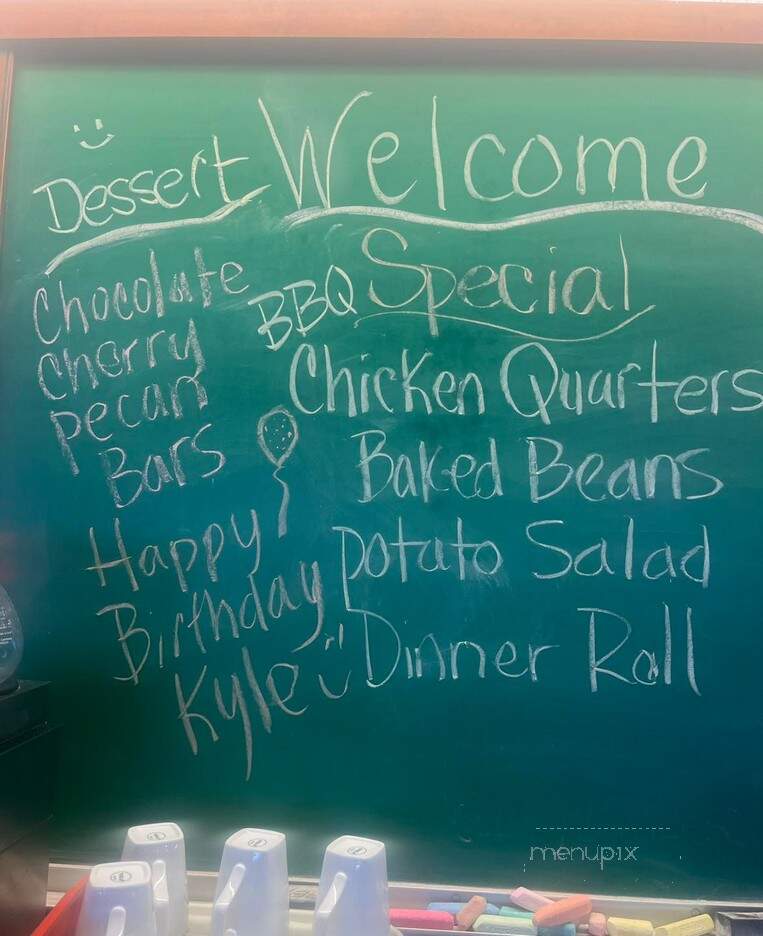 Welcome
Dessert
Chocolate
Cherry
Pecan
Bars
Happy
Birthday
Kyle
BBQ Special
Chicken Quarters
Baked Beans
Potato Salad
Dinner Roll
menupix